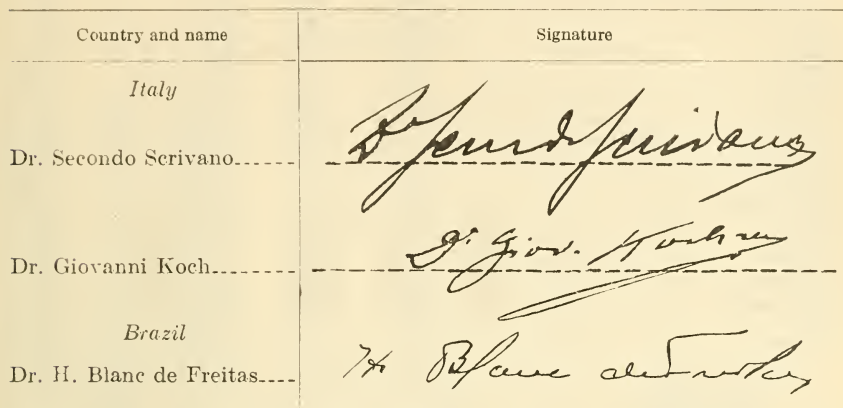 Country and name Signature
Italy
Dr. Secondo Scrivano...... Dr Secondo Scrivano
Dr. Giovanni Koch........ Dr. Giov. Koch
Brazil
Dr. H. Blanc de Freitas.... H Blanc de Freitas